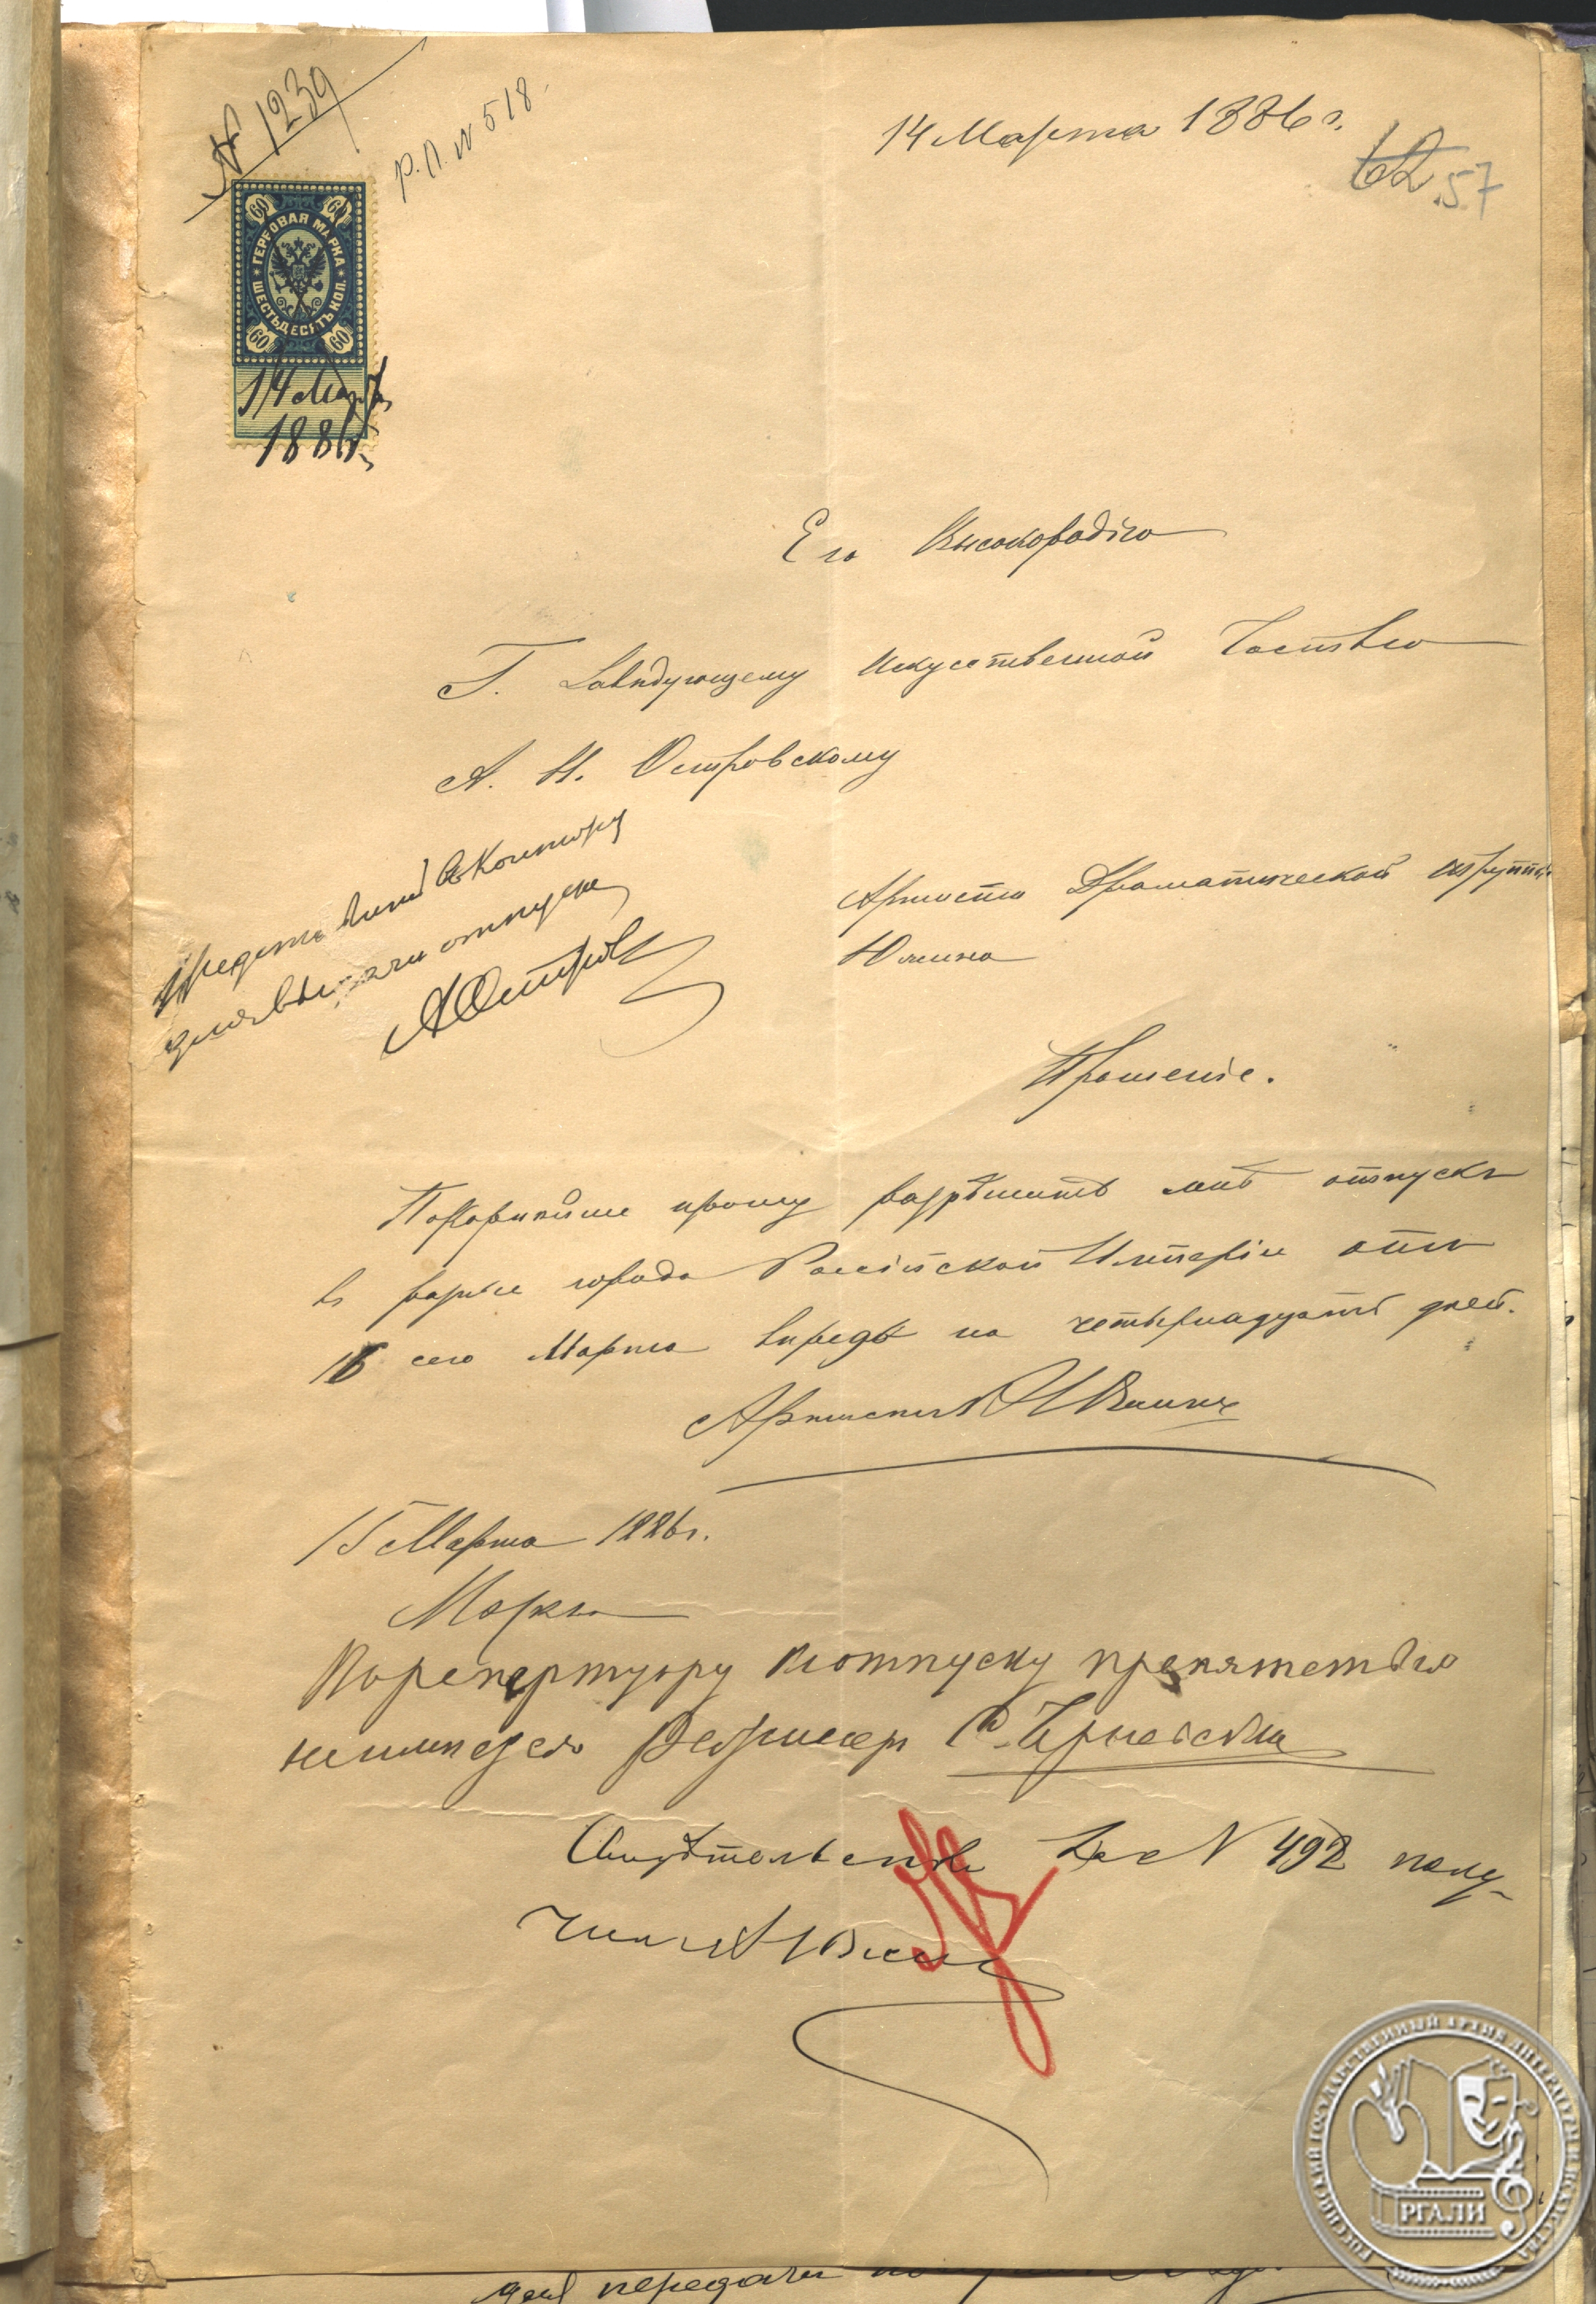 № 1239
Р.П. № 518.
14 Марта 1886 г.
62 57
60 60
ГЕРБОВАЯ МАРКА
ШЕСТЬДЕСЯТЪ КОП.
60 60
14 Марта
1886 г.
Его Высокородію
Г. Завѣдующему Искусственной Частью
А. Н. Островскому
Представить въ Контору
для выдачи отпуска
А Островск
Артиста Драматической труппы
Южина
Прошеніе.
Покорнѣйше прошу разрѣшить мнѣ отпускъ
въ разные города Россійской Имперіи отъ
16 сего Марта впредь на четырнадцать дней.
Артистъ А Южинъ
15 Марта 1886 г.
Марта
По репертуару къ отпуску препятствія
неимѣется Режисеръ С. Черневскій
Свидѣтельство за № 492 полу-
чилъ А Южинъ
для передачи
РОССИЙСКИЙ ГОСУДАРСТВЕННЫЙ АРХИВ ЛИТЕРАТУРЫ И ИСКУССТВА
РГАЛИ